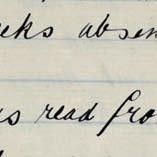 eks absen
s read fro